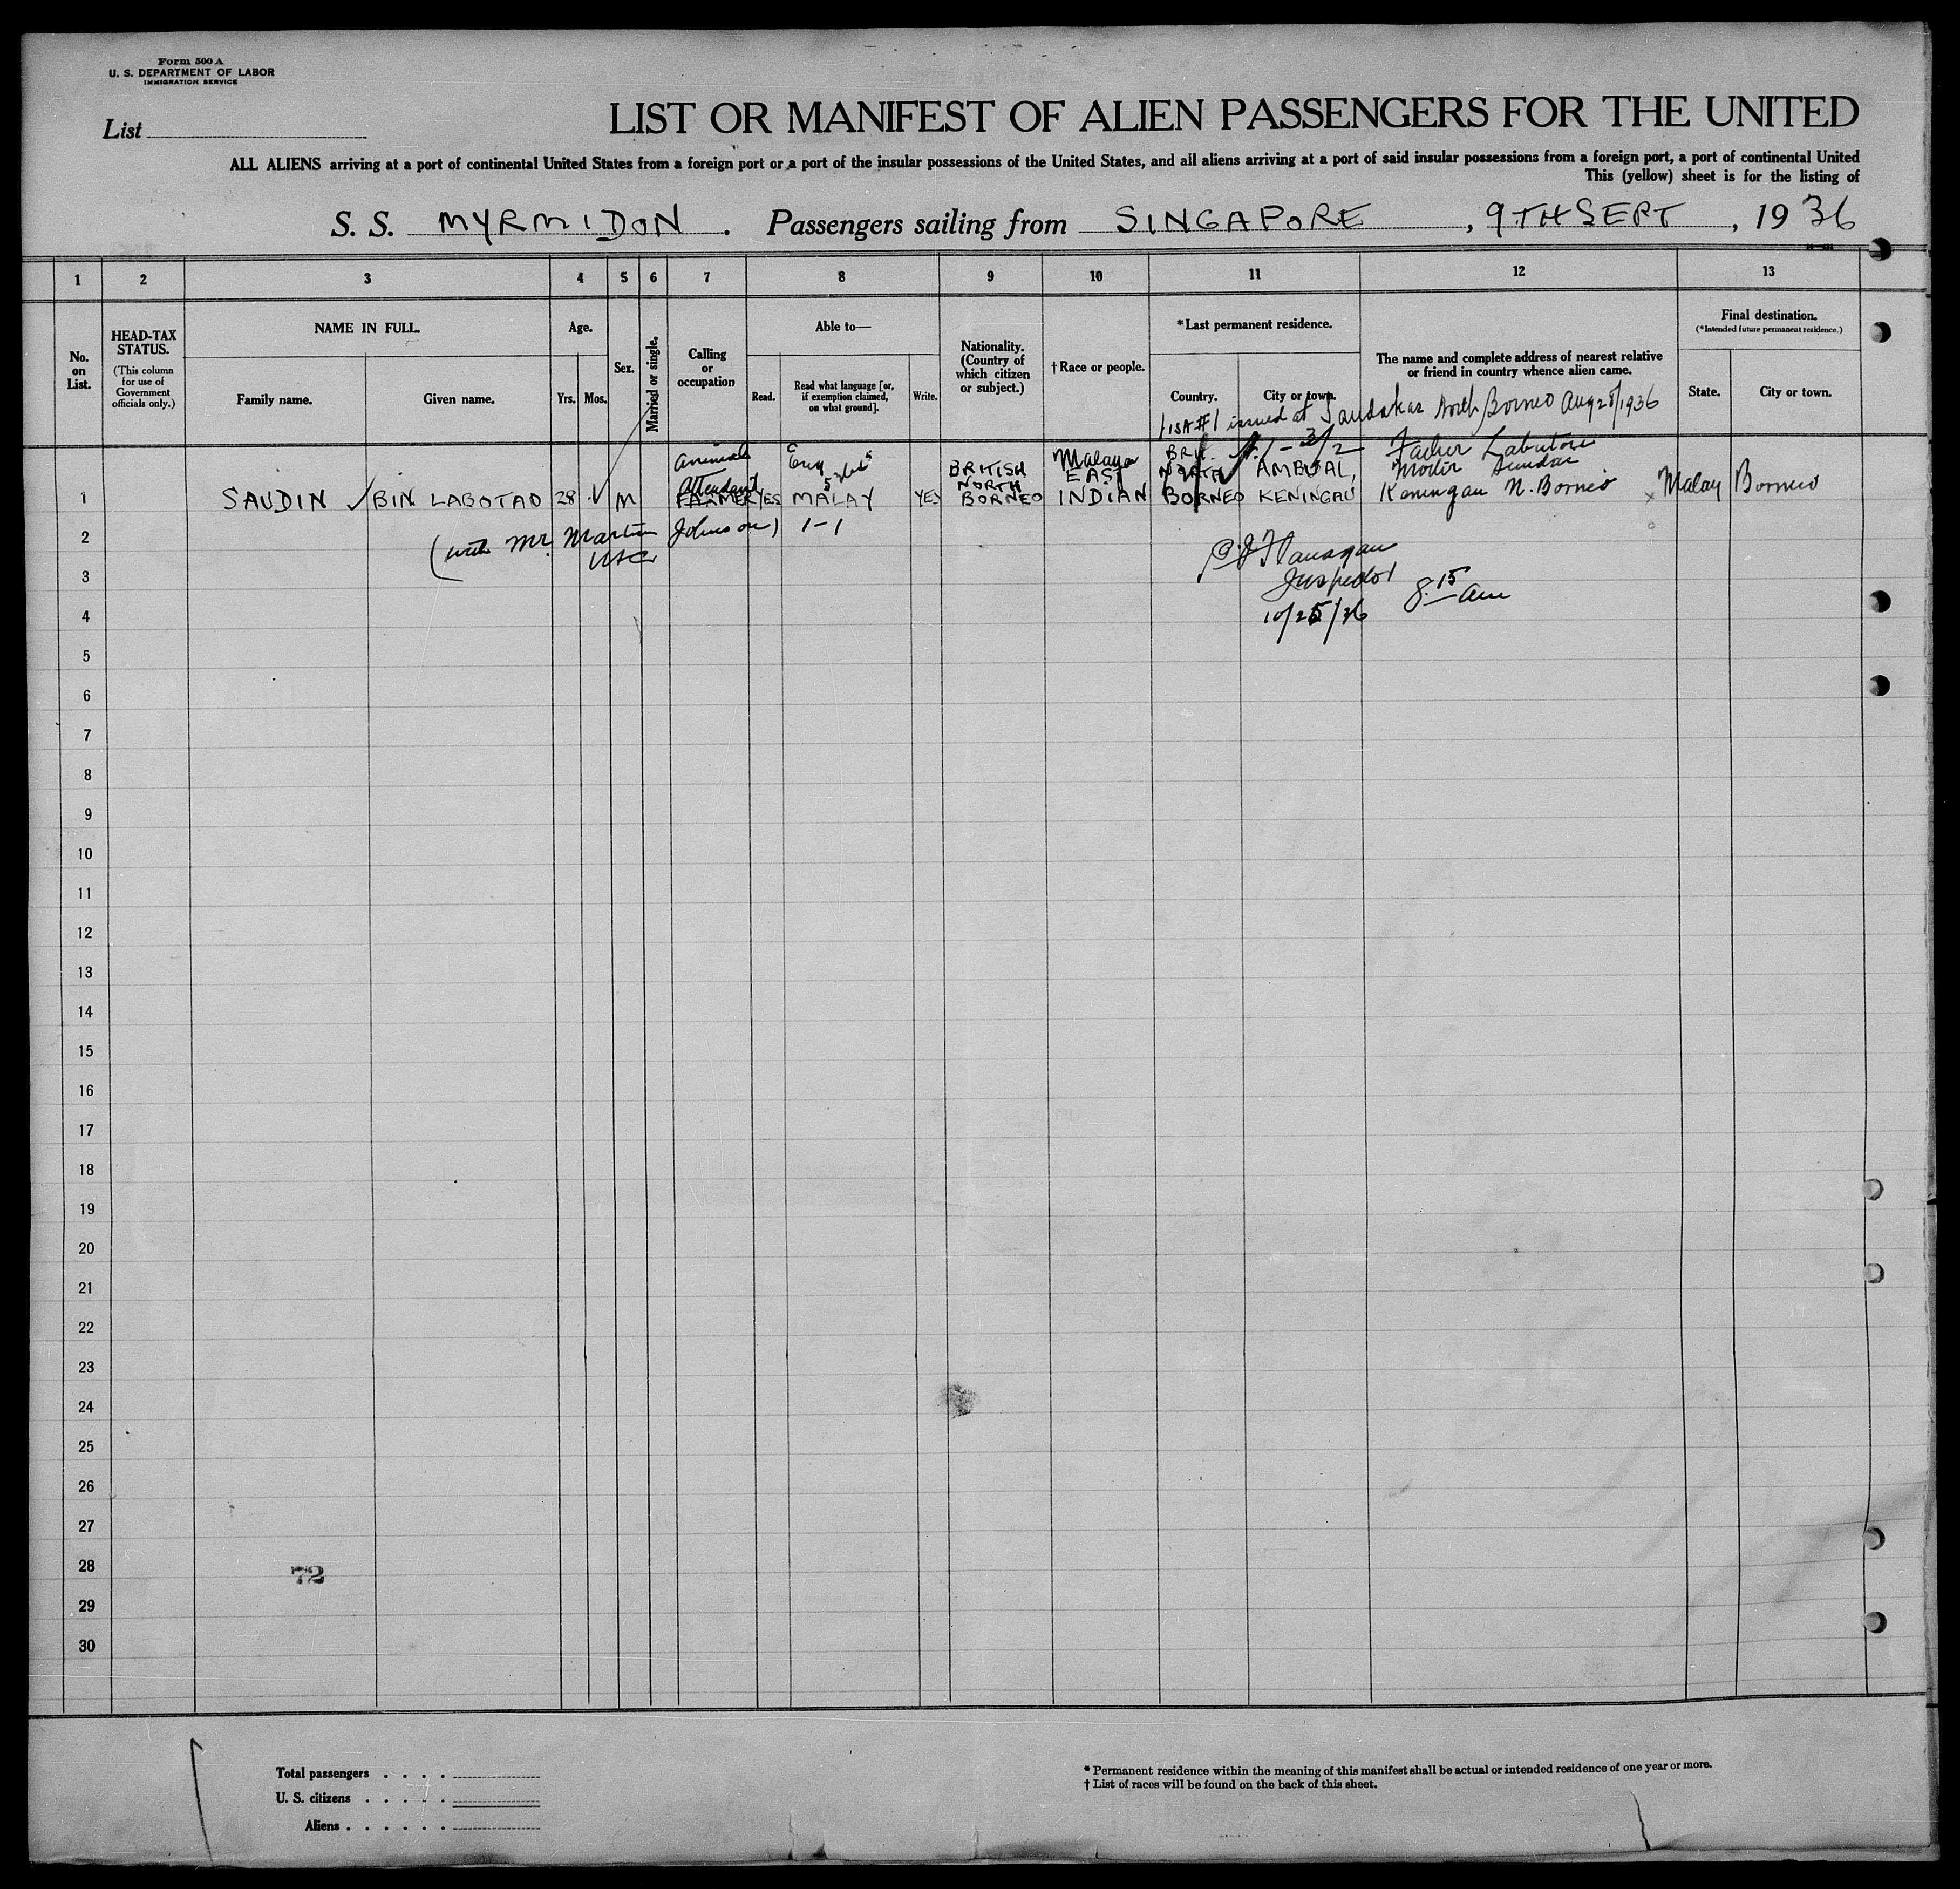 Form 500 A
U. S. DEPARTMENT OF LABOR
IMMIGRATION SERVICE
List
LIST OR MANIFEST OF ALIEN PASSENGERS FOR THE UNITED
ALL ALIENS arriving at a port of continental United States from a foreign port or a port of the insular possessions of the United States, and all aliens arriving at a port of said insular possessions from a foreign port, a port of continental United
This (yellow) sheet is for the listing of
S. S. MYRMIDON . Passengers sailing from SINGAPORE , 9TH SEPT , 1936
1 2 3 4 5 6 7 8 9 10 11 12 13
No. on List.
HEAD-TAX STATUS.
(This column for use of Government officials only.)
NAME IN FULL.
Family name.
Given name.
Age.
Yrs. Mos.
Sex.
Married or single.
Calling or occupation
Able to—
Read.
Read what language [or, if exemption claimed, on what ground].
Write.
Nationality. (Country of which citizen or subject.)
†Race or people.
*Last permanent residence.
Country.
City or town.
The name and complete address of nearest relative or friend in country whence alien came.
Final destination.
(*Intended future permanent residence.)
State.
City or town.
issued at Sandakan North Borneo Aug 28/1936
1 SAUDIN BIN LABOTAO 28 M
Animal Attendant
FARMER YES
Eng
MALAY YES
BRITISH NORTH BORNEO
Malaya
EAST INDIAN
BRIT. NORTH BORNEO
AMBUAL, KENINGAU
Father Labutow
Keningau N. Borneo
x Malay Borneo
2 (with Mr. Martin Johnson) 1-1
USC
3
Flanagan
Inspector
8.15 am
4 10/25/36
5
6
7
8
9
10
11
12
13
14
15
16
17
18
19
20
21
22
23
24
25
26
27
28
72
29
30
Total passengers . . . .
U. S. citizens . . . . .
Aliens . . . . . .
* Permanent residence within the meaning of this manifest shall be actual or intended residence of one year or more.
† List of races will be found on the back of this sheet.